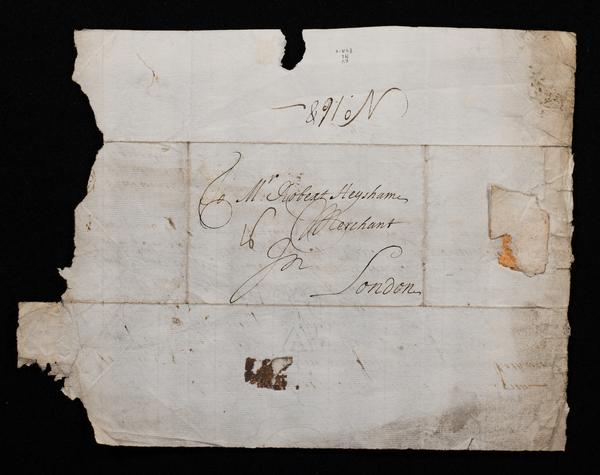 No 168
To Mr Robert Heysham
Merchant
16
In
London